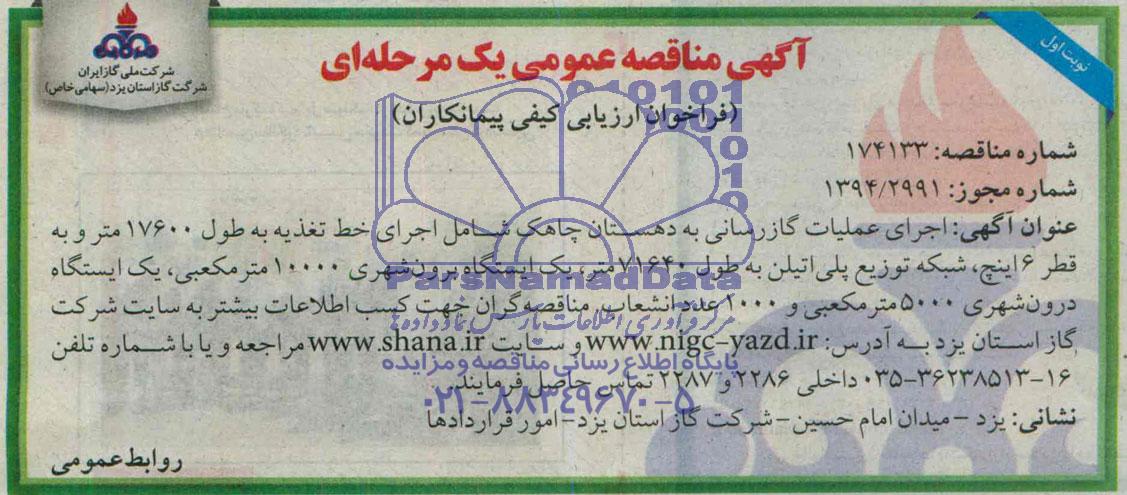 نوبت اول
شرکت ملی گاز ایران
شرکت گاز استان یزد (سهامی خاص)
آگهی مناقصه عمومی یک مرحله‌ای
(فراخوان ارزیابی کیفی پیمانکاران)
شماره مناقصه: ۱۷۴۱۳۳
شماره مجوز: ۱۳۹۴/۲۹۹۱
عنوان آگهی: اجرای عملیات گازرسانی به دهستان چاهک شامل اجرای خط تغذیه به طول ۱۷۶۰۰ متر و به
قطر ۶ اینچ، شبکه توزیع پلی‌اتیلن به طول ۷۱۶۴۰ متر، یک ایستگاه برون‌شهری ۱۰۰۰۰ مترمکعبی، یک ایستگاه
درون‌شهری ۵۰۰۰ مترمکعبی و ۱۰۰۰ عدد انشعاب. مناقصه‌گران جهت کسب اطلاعات بیشتر به سایت شرکت
گاز استان یزد به آدرس: www.nigc-yazd.ir و سایت www.shana.ir مراجعه و یا با شماره تلفن
۰۳۵-۳۶۲۳۸۵۱۳-۱۶ داخلی ۲۲۸۶ و ۲۲۸۷ تماس حاصل فرمایند.
نشانی: یزد - میدان امام حسین - شرکت گاز استان یزد - امور قراردادها
روابط عمومی
ParsNamadData
مرکز فرآوری اطلاعات پارس نماد داده‌ها
پایگاه اطلاع رسانی مناقصه و مزایده
۰۲۱-۸۸۳۴۹۶۷۰-۵